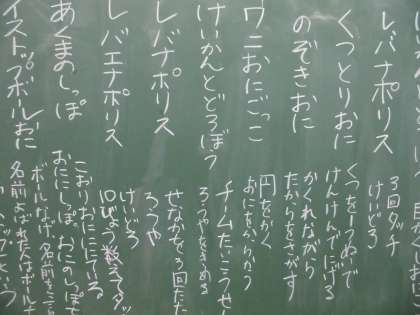 レバナポリス
3回タッチ
けいどろ
くつとりおに
くつをうぬいで
けんけんでにげる
のぞきおに
かくれながら
たからをさがす
ワニおにごっこ
円をかく
けいかんとどろぼう
チームたいこうせ
ろうやをきめる
レバナポリス
せなかを3回たた
ろうや
レバエナポリス
けいどろ
10びょう数えてタッ
あくまのしっぽ
こおりおににている
おににしっぽ。おにのしっぽ
イストップボールおに
ボールなげ、名前を
名前よばれた人はボール